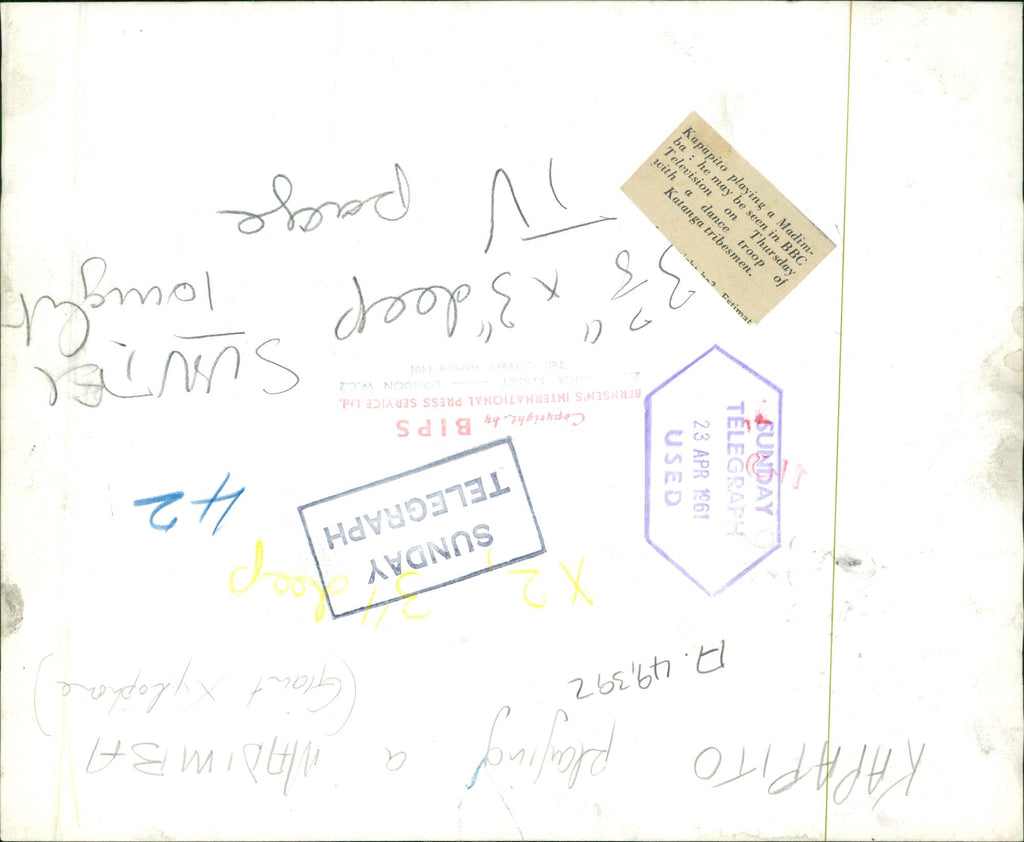 KAPAPITO playing a MADIMBA
(Giant Xylophone)
A. 49,392
X 2, 3" deep
SUNDAY
TELEGRAPH
42
Copyright by BIPS
BERNSEN'S INTERNATIONAL PRESS SERVICE Ltd.
LONDON W.C.2
Tel. COVent Garden
SUN. TEL
Tonight
x 3" deep
TV
page
SUNDAY
TELEGRAPH
23 APR 1961
USED
Kapapito playing a Madim-
ba : he may be seen in BBC
Television on Thursday
with a dance troop of
Katanga tribesmen.